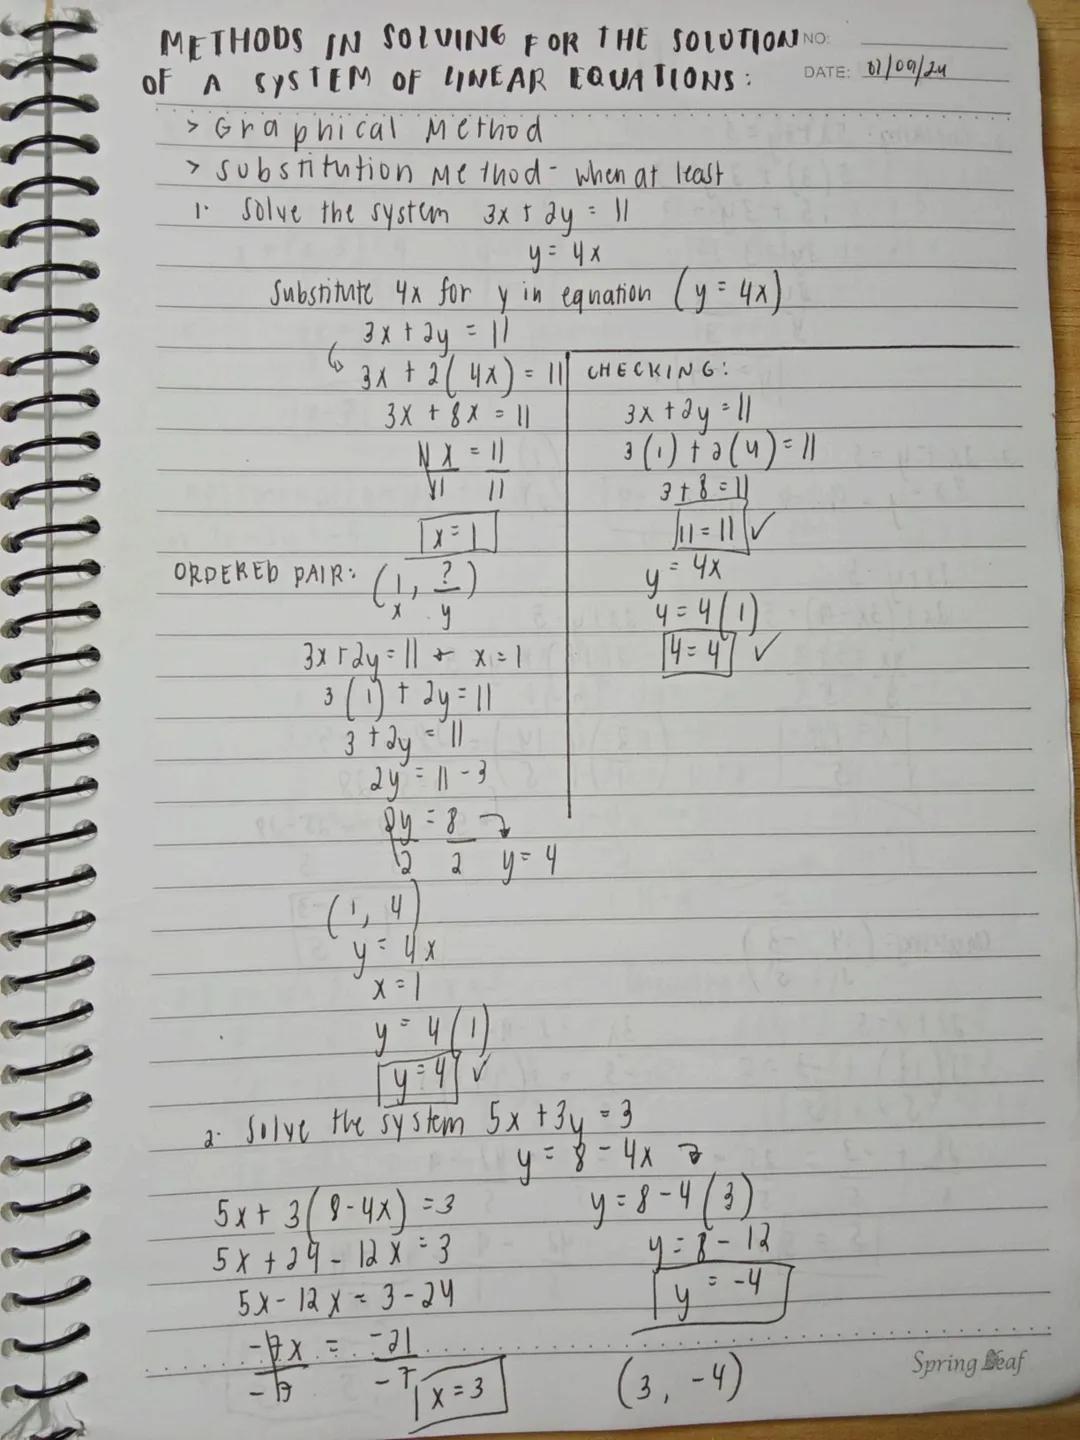 METHODS IN SOLVING FOR THE SOLUTION
OF A SYSTEM OF LINEAR EQUATIONS:
NO:
DATE: 02/09/24
> Graphical Method
> Substitution Method - when at least
1. Solve the system 3x + 2y = 11
y = 4x
Substitute 4x for y in equation (y = 4x)
3x + 2y = 11
3x + 2(4x) = 11
3x + 8x = 11
11x = 11
11 11
x = 1
CHECKING:
3x + 2y = 11
3(1) + 2(4) = 11
3 + 8 = 11
11 = 11 ✓
y = 4x
4 = 4(1)
4 = 4 ✓
ORDERED PAIR: (1, ?)
x y
3x + 2y = 11 x = 1
3(1) + 2y = 11
3 + 2y = 11
2y = 11 - 3
2y = 8
2 2 y = 4
(1, 4)
y = 4x
x = 1
y = 4(1)
y = 4 ✓
2. Solve the system 5x + 3y = 3
y = 8 - 4x
5x + 3(8 - 4x) = 3
5x + 24 - 12x = 3
5x - 12x = 3 - 24
-7x = -21
-7 -7
x = 3
y = 8 - 4(3)
y = 8 - 12
y = -4
(3, -4)
Spring Leaf